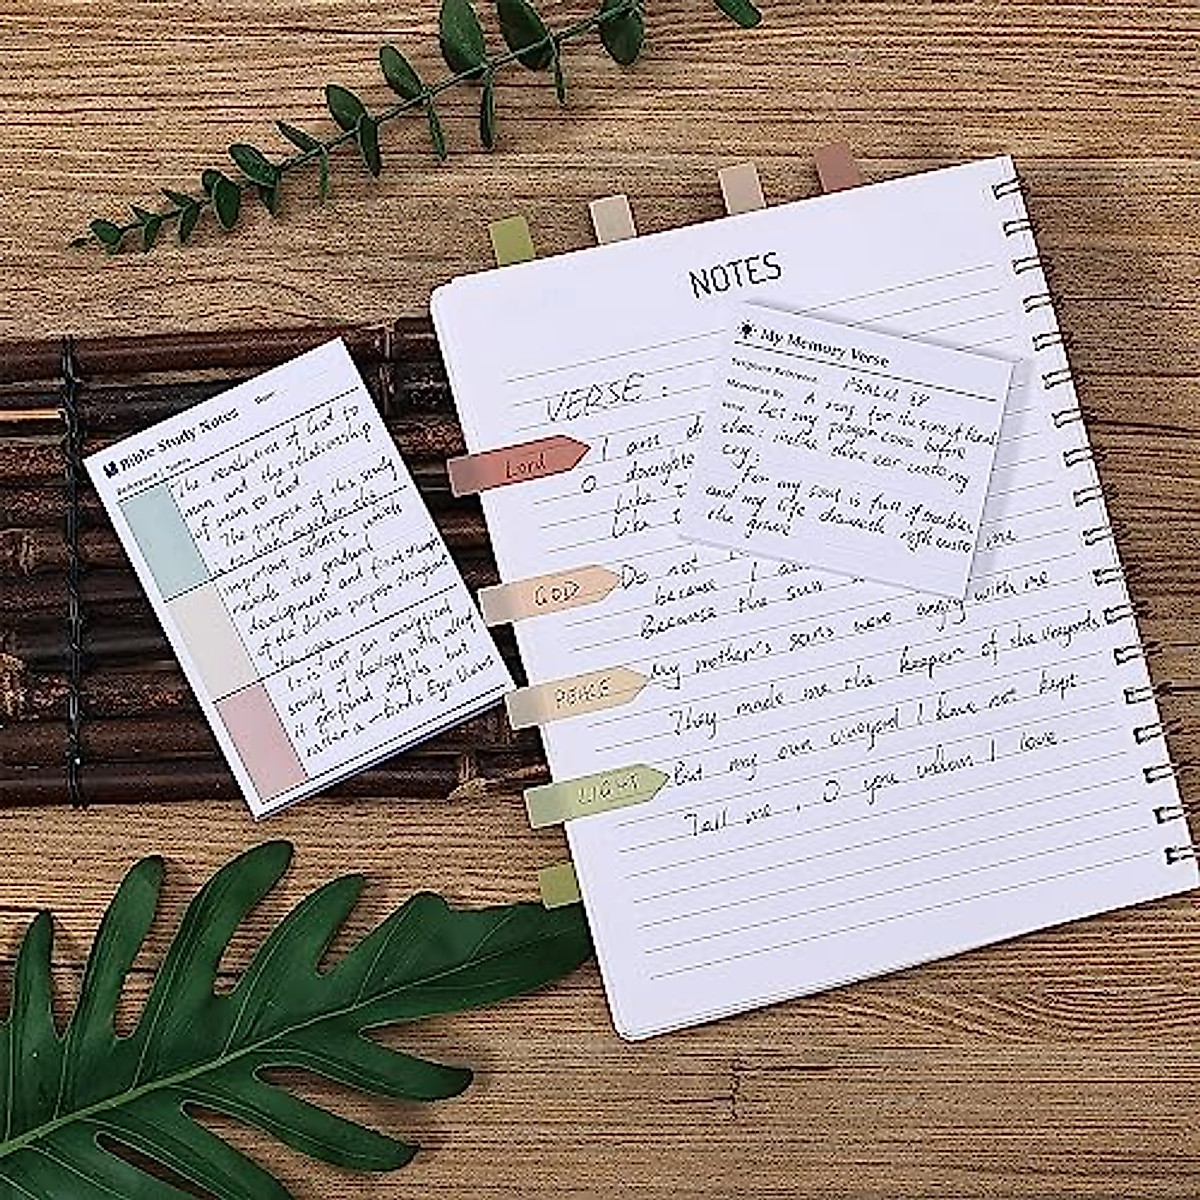 NOTES
VERSE:
Lord
I am d
O daughte
Like t
Like t
GOD
Do not
me
because I a
Because the sun
PEACE
My mother's sons were angry with me
They made me the keeper of the vineyards
LIGHT
But my own vineyard I have not kept
Tell me, O you whom I love
My Memory Verse
Scripture Reference
PSALM 88
Memorize by
A song for the sons of
Let my prayer come before
incline thine ear unto my
cry;
For my soul is full of troubles
and my life draweth nigh unto
the grave
Bible Study Notes
The revelation of God to
man and the relationship
of man to God
The purpose of this study
important
which
reveals the gradual
development and
of the divine purpose throughout
the ages
It is not an analytical
study of theology with all of
its profound depths, but
rather a Bird's Eye View